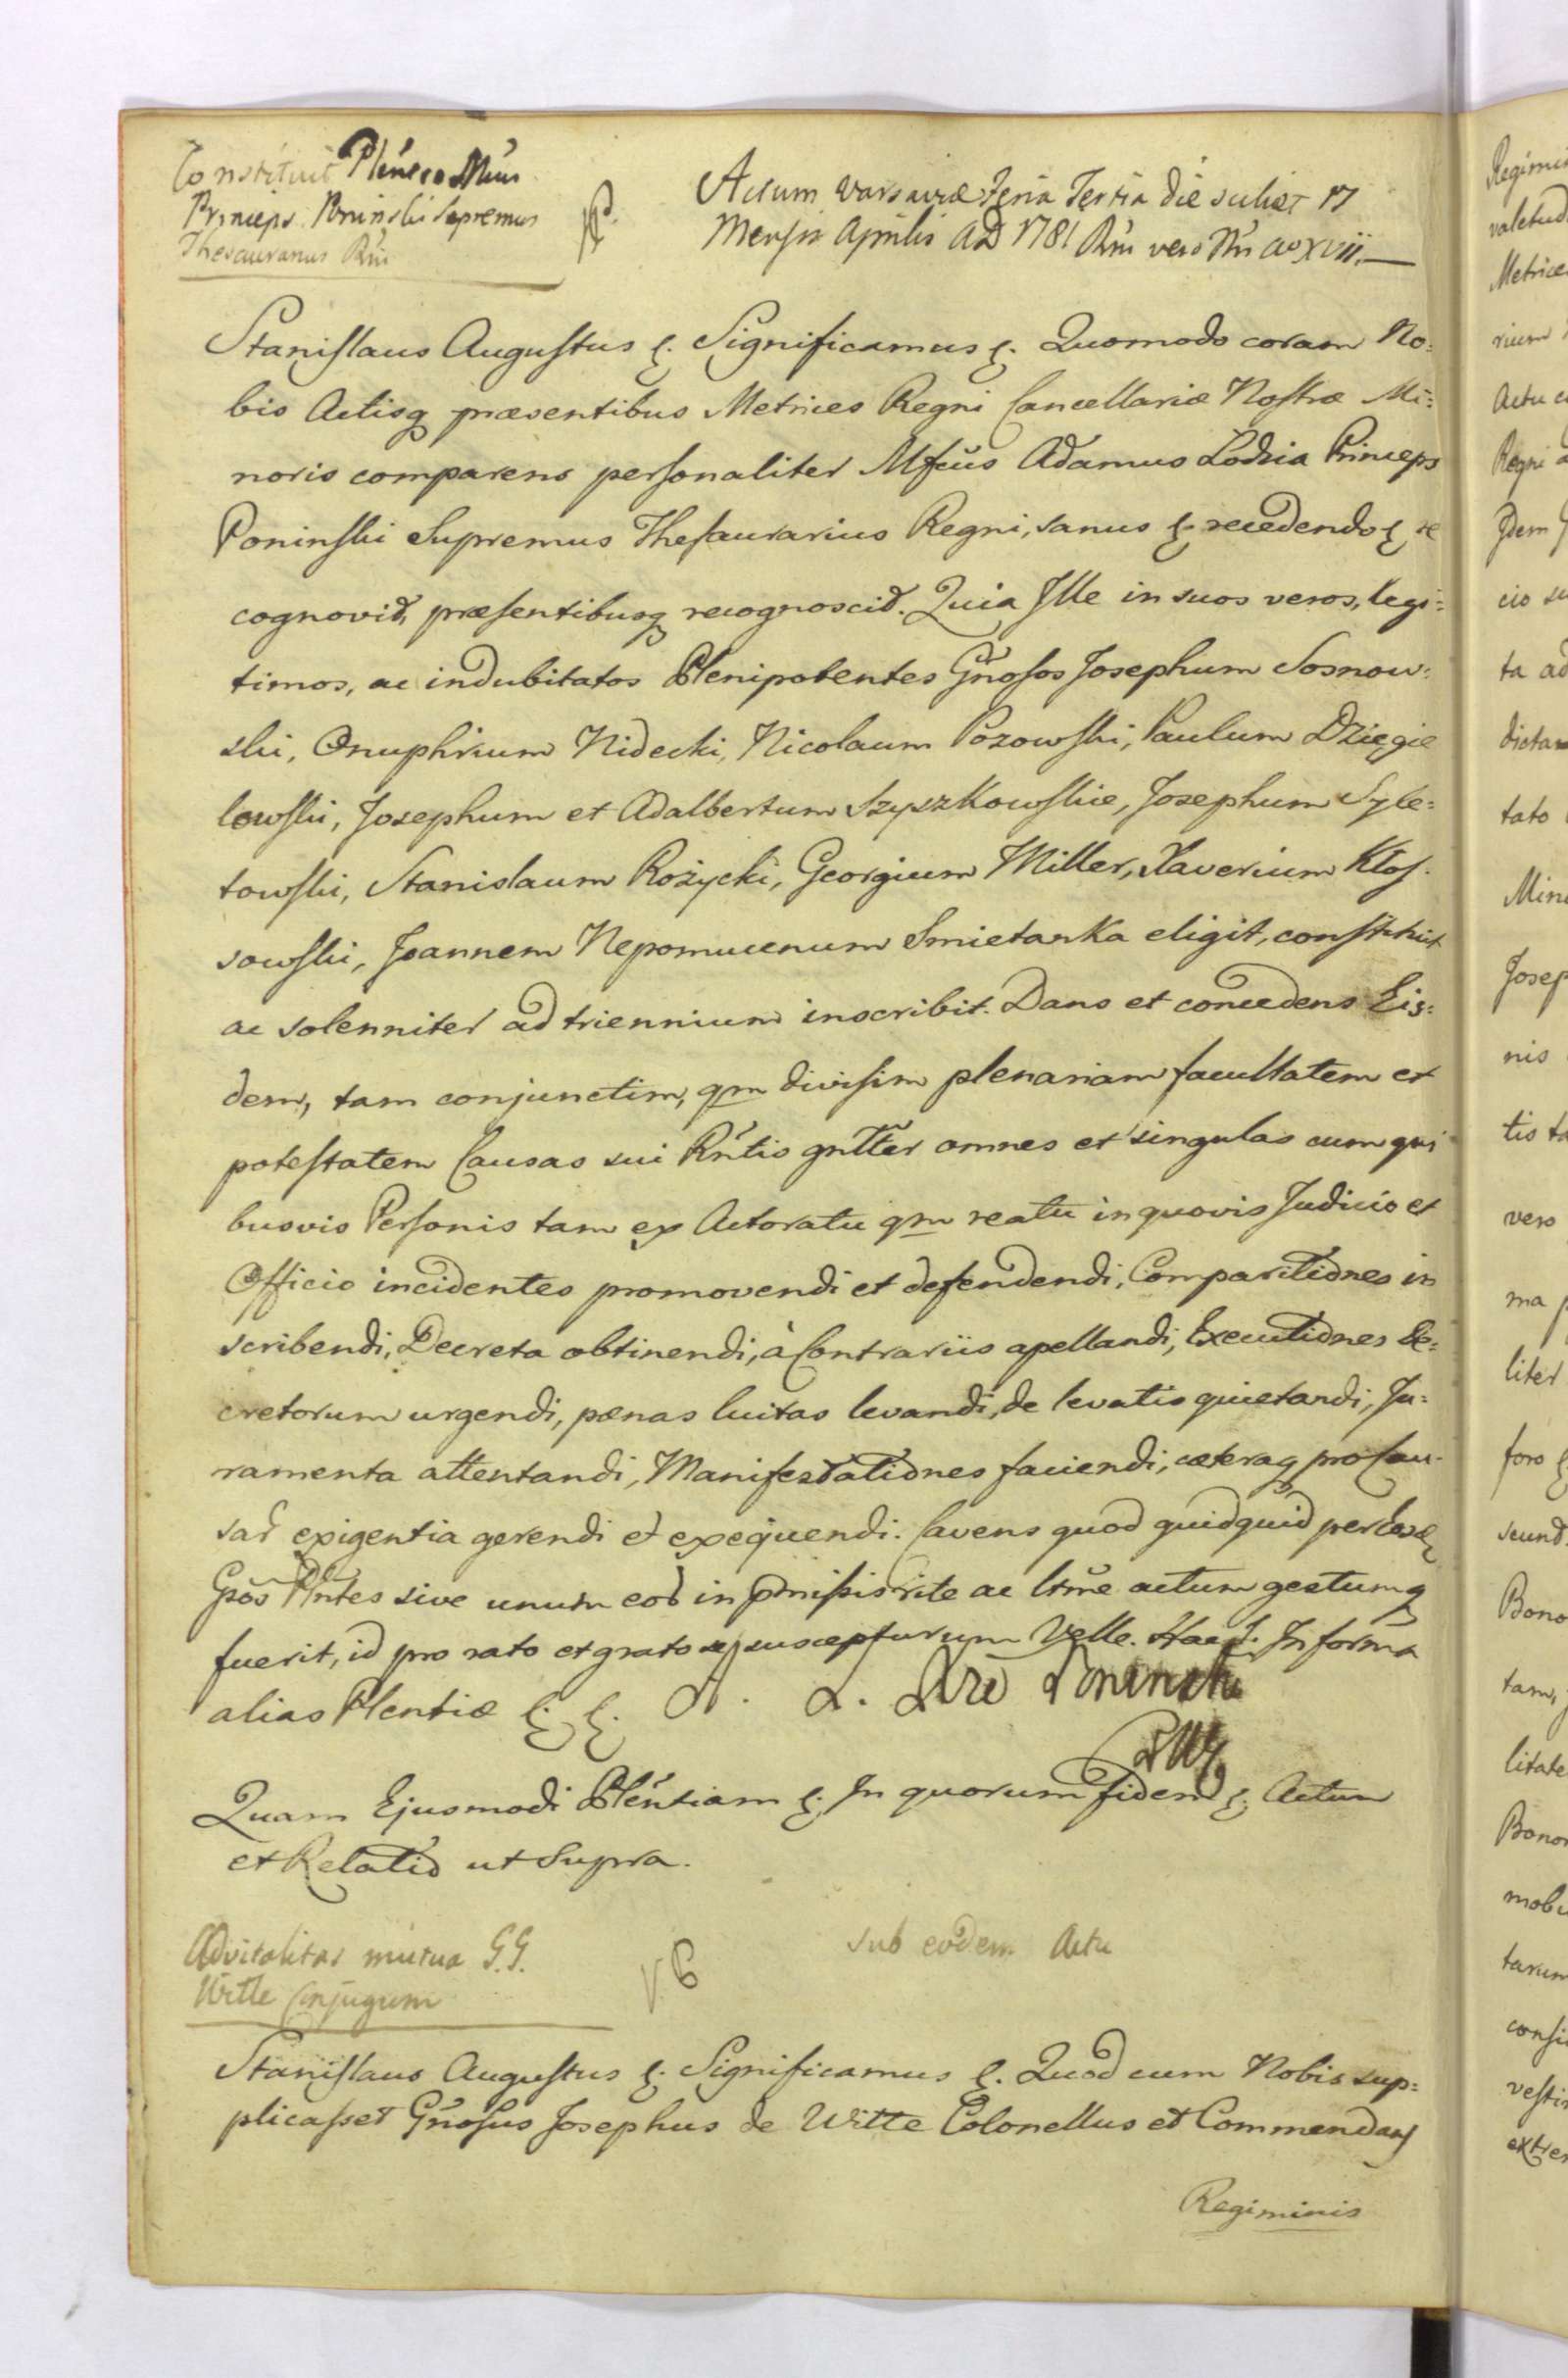 Constituit Plenero Mfcus
Princeps Poninski Supremus
Thesaurarius Rni
Actum Varsaviæ Feria Tertia die scilicet 17
Mensis Aprilis AD 1781 Rni vero Nri ao XVII.—
Stanislaus Augustus &. Significamus &. Quomodo coram No=
bis Actisq præsentibus Metrices Regni Cancellariæ Nostræ Mi=
noris comparens personaliter Mfcus Adamus Lodzia Princeps
Poninski Supremus Thesaurarius Regni, sanus & recedendo & re
cognovit, præsentibusq recognoscit. Quia Ille in suos veros, legi=
timos, ac indubitatos Plenipotentes Gnosos Josephum Sosnow=
ski, Onuphrium Nidecki, Nicolaum Pozowski, Paulum Dzięgie
lowski, Josephum et Adalbertum Szyszkowskie, Josephum Syle=
towski, Stanislaum Rożycki, Georgium Miller, Xaverium Kłos=
sowski, Joannem Nepomucenum Smietanka eligit, constituit
ac solenniter ad triennium inscribit. Dans et concedens Eis=
dem, tam conjunctim, qm divisim plenariam facultatem et
potestatem Causas sui Rntis gnlter omnes et singulas cum qui
busvis Personis tam ex Actoratu qm reatu in quovis Judicio et
Officio incidentes promovendi et defendendi, Comparitiones in
scribendi, Decreta obtinendi, à Contrariis apellandi, Executiones De=
cretorum urgendi, pænas luitas levandi, de levatis quietandi, Ju=
ramenta attentandi, Manifestationes faciendi, cæteraq pro Cau=
sar exigentia gerendi et exequendi. Cavens quod quidquid per
Gsos Plntes sive unum eor in pmissis rite ac ltme actum gestumq
fuerit, id pro rato et grato se suscepturum velle. Informa
alias Plentiæ &. &. Poninski
Quam Ejusmodi Plentiam &. In quorum fidem &. Actum
et Relatio ut Supra.
Advitalitas mutua G.G.
Witte Conjugum
sub eodem Actu
Stanislaus Augustus &. Significamus &. Quod cum Nobis sup=
plicasset Gnosus Josephus de Witte Colonellus et Commendans
Regiminis